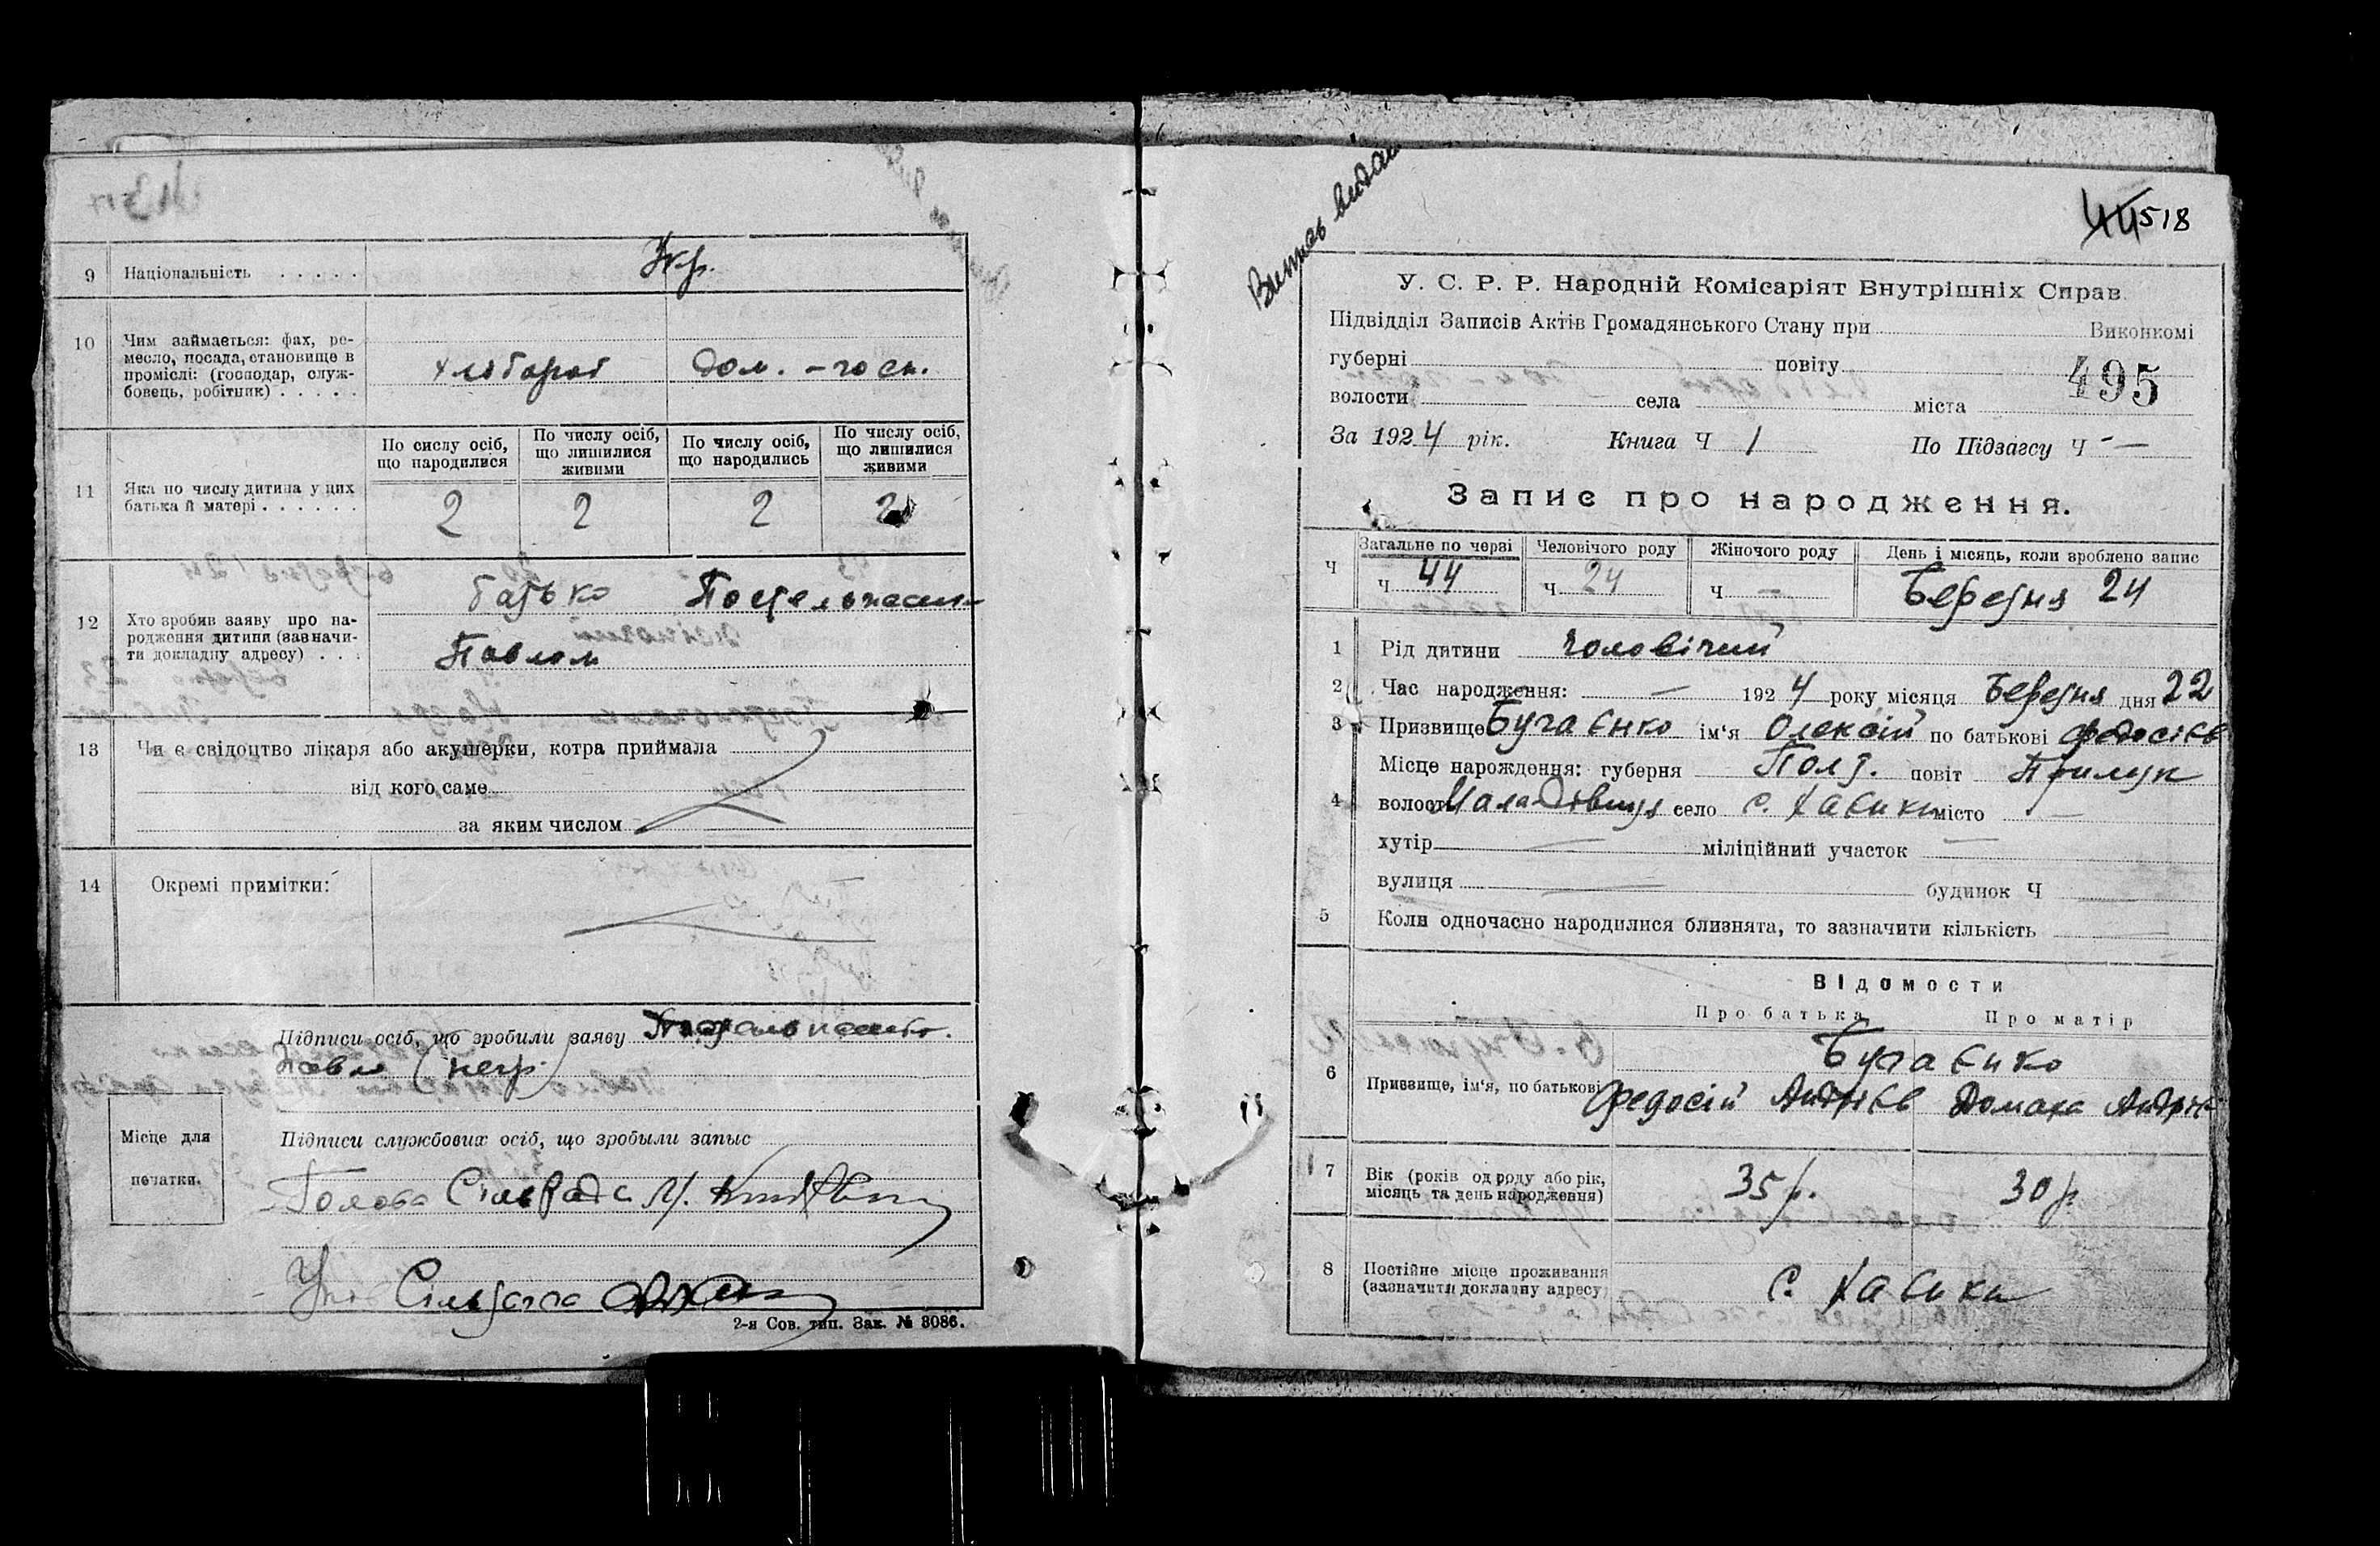 9 Національність . . . . . Укр.
10 Чим займається: фах, ре-
месло, посада, становище в
проміслі: (господар, служ-
бовець, робітник) . . . . . хлібороб дом. - госп.
По сислу осіб, що народилися
По числу осіб, що лишилися живими
По числу осіб, що народились
По числу осіб, що лишилися живими
11 Яка по числу дитина у цих
батька й матері . . . . . . 2 2 2 2
12 Хто зробив заяву про на-
родження дитини (зазначи-
ти докладну адресу) . . . батько
Павлом
13 Чи є свідоцтво лікаря або акушерки, котра приймала
від кого саме
за яким числом
14 Окремі примітки:
Підписи осіб, що зробили заяву
Павло (негр)
Місце для
печатки.
Підписи службових осіб, що зробыли запыс
Голова Сільради
Сільради
2-я Сов. тип. Зак. № 3086.
Випись видан
44 518
У. С. Р. Р. Народній Комісаріят Внутрішніх Справ.
Підвідділ Записів Актів Громадянського Стану при Виконкомі
губерні повіту
495
волости села міста
За 1924 рік. Книга Ч 1 По Підзагсу Ч —
Запис про народження.
Ч Загальне по черзі Человічого роду Жіночого роду День і місяць, коли зроблено запис
Ч 44 Ч 24 Ч — Березня 24
1 Рід дитини чоловічий
2 Час народження: — 1924 року місяця Березня дня 22
3 Призвище Бугаєнко ім'я Олексій по батькові Федосієв
4 Місце нарождення: губерня Полт. повіт Прилук
волост село с. Хаєнки місто —
хутір — міліційний участок —
вулиця — будинок Ч
5 Коли одночасно народилися близнята, то зазначити кількість
Відомости
Про батька Про матір
Бугаєнко
6 Призвище, ім'я, по батькові Федосій Андрієв Домаха Андріє
7 Вік (років од роду або рік,
місяць та день народження) 35 р. 30 р.
8 Постійне місце проживання
(зазначити докладну адресу) с. Хаєнки